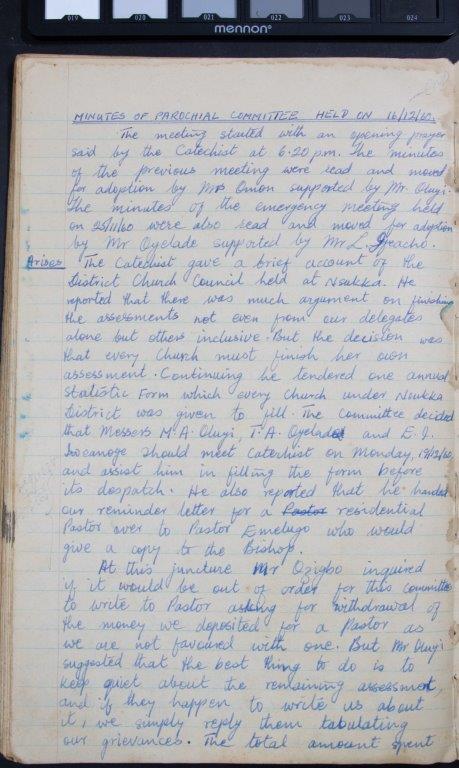 019 020 021 022 023 024
mennon®
MINUTES OF PAROCHIAL COMMITTEE HELD ON 16/12/60.
The meeting started with an opening prayer
said by the Catechist at 6.20 p.m. The minutes
of the previous meeting were read and moved
for adoption by Mrs Onion supported by Mr. Oluyi.
The minutes of the emergency meeting held
on 25/11/60 were also read and moved for adoption
by Mr Oyelade supported by Mr L.
Arises The Catechist gave a brief account of the
District Church Council held at Nsukka. He
reported that there was much argument on finishing
the assessments not even from our delegates
alone but others inclusive. But the decision was
that every Church must finish her own
assessment. Continuing he tendered one annual
Statistic Form which every Church under Nsukka
District was given to fill. The Committee decided
that Messers M.A. Oluyi, T.A. Oyelade and E.I.
Iwcanoge should meet Catechist on Monday,
and assist him in filling the form before
its despatch. He also reported that he handed
our reminder letter for a Pastor residential
Pastor over to Pastor Emelugo who would
give a copy to the Bishop.
At this juncture Mr Ozigbo inquired
if it would be out of order for this committee
to write to Pastor asking for withdrawal of
the money we deposited for a Pastor as
we are not favoured with one. But Mr Oluyi
suggested that the best thing to do is to
keep quiet about the remaining assessment,
and if they happen to write us about
it, we simply reply them tabulating
our grievances. The total amount spent